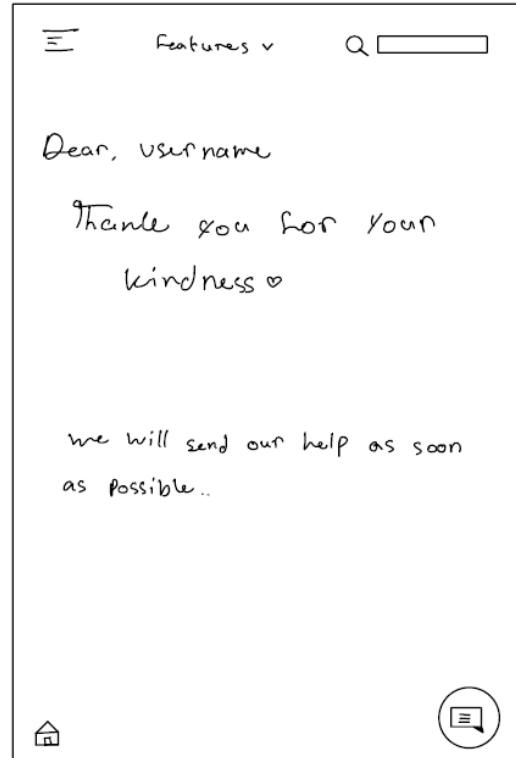 Features ∨
Dear, username
Thank you for your
kindness ♡
we will send our help as soon
as possible..